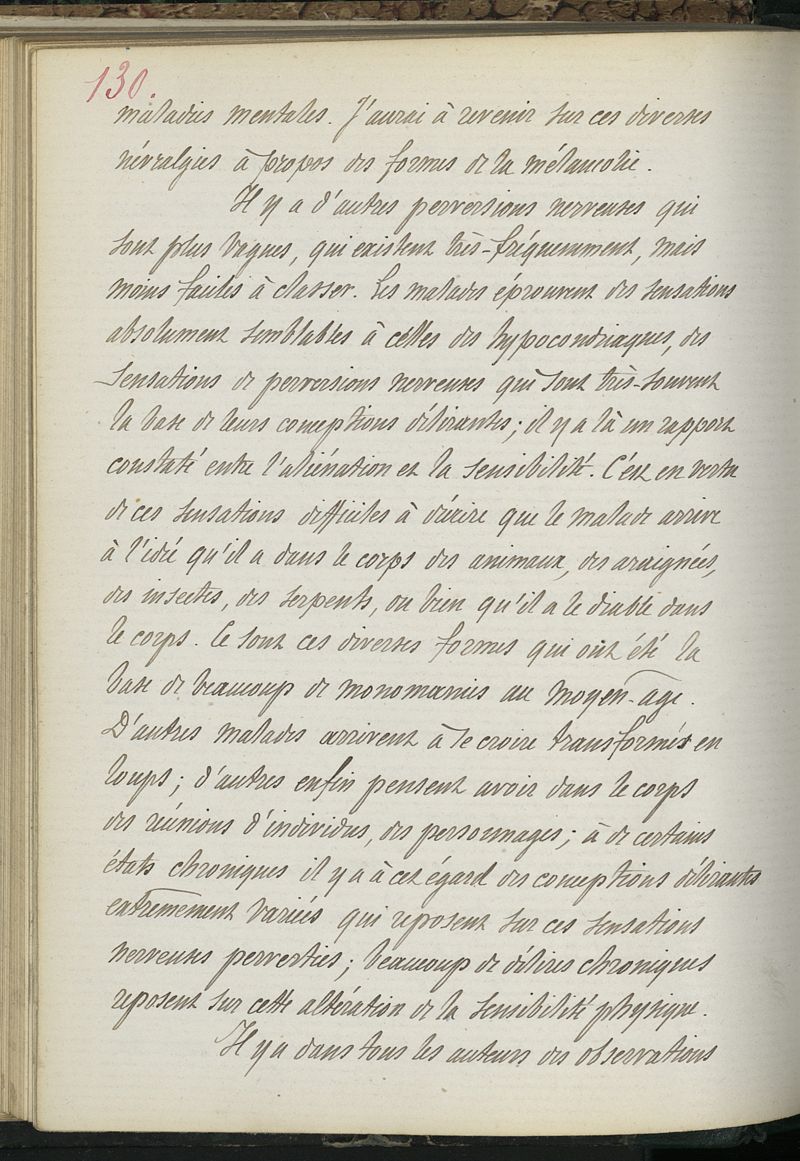 130.
maladies mentales. J'aurai à revenir sur ces diverses
névralgies à propos des formes de la mélancolie.
Il y a d'autres perversions nerveuses qui
sont plus vagues, qui existent très-fréquemment, mais
moins faciles à classer. Les malades éprouvent des sensations
absolument semblables à celles des hypocondriaques, des
sensations de perversions nerveuses qui sont très-souvent
la base de leurs conceptions délirantes; il y a là un rapport
constaté entre l'aliénation et la sensibilité. C'est en vertu
de ces sensations difficiles à décrire que le malade arrive
à l'idée qu'il a dans le corps des animaux, des araignées,
des insectes, des serpents, ou bien qu'il a le diable dans
le corps. Ce sont ces diverses formes qui ont été la
base de beaucoup de monomanies au moyen-age.
D'autres malades arrivent à se croire transformés en
loups; d'autres enfin pensent avoir dans le corps
des réunions d'individus, des personnages; à de certains
états chroniques il y a à cet égard des conceptions délirantes
extrêmement variées qui reposent sur ces sensations
nerveuses perverties; beaucoup de délires chroniques
reposent sur cette altération de la sensibilité physique.
Il y a dans tous les auteurs des observations